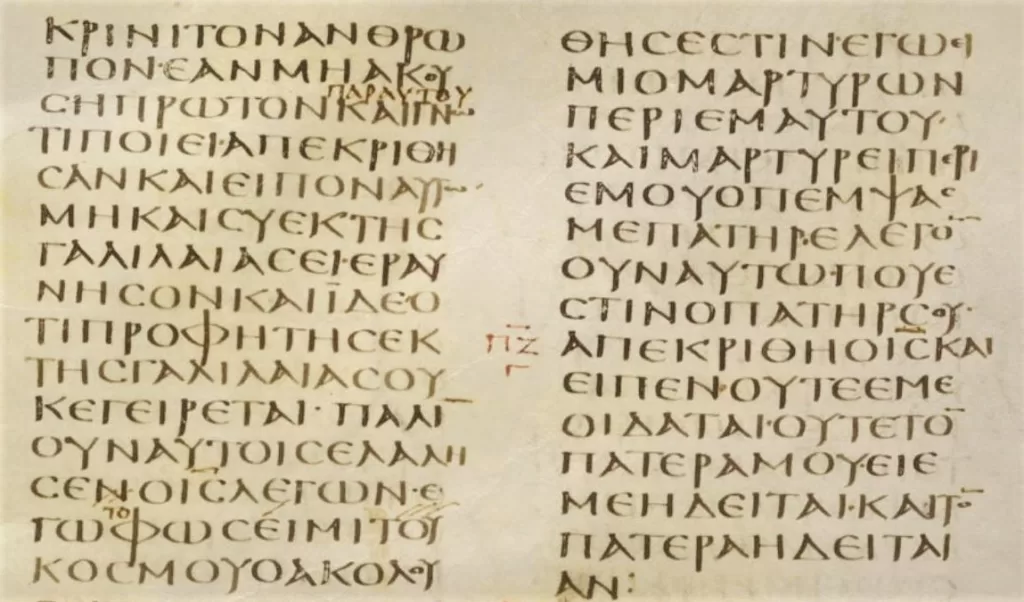 ΚΡΙΝΙΤΟΝΑΝΘΡΩ
ΠΟΝ·ΕΑΝΜΗΑΚΟΥ
ΠΑΡΑΥΤΟΥ
ΣΗΠΡΩΤΟΝΚΑΙΓΝ
ΤΙΠΟΙΕΙ·ΑΠΕΚΡΙΘΗ
ϹΑΝΚΑΙΕΙΠΟΝΑΥΤ
ΜΗΚΑΙϹΥΕΚΤΗϹ
ΓΑΛΙΛΑΙΑϹΕΙ·ΕΡΑΥ
ΝΗϹΟΝΚΑΙΪΔΕΟ
ΤΙΠΡΟΦΗΤΗϹΕΚ
ΤΗϹΓΑΛΙΛΑΙΑϹΟΥ
ΚΕΓΕΙΡΕΤΑΙ· ΠΑΛΙ̅
ΟΥΝΑΥΤΟΙϹΕΛΑΛΗ
ϹΕΝ·ΟΙ̅Ϲ̅ΛΕΓΩΝ·Ε
ΤΟ
ΓΩΦΩϹΕΙΜΙΤΟΥ
ΚΟϹΜΟΥΟΑΚΟΛΟΥ
ΘΗϹΕϹΤΙΝ·ΕΓΩΕΙ
ΜΙΟΜΑΡΤΥΡΩΝ
ΠΕΡΙΕΜΑΥΤΟΥ·
ΚΑΙΜΑΡΤΥΡΕΙΠΕΡΙ
ΕΜΟΥΟΠΕΜΨΑϹ
ΜΕΠΑΤΗΡ·ΕΛΕΓΟ̅
ΟΥΝΑΥΤΩ·ΠΟΥΕ
ϹΤΙΝΟΠΑΤΗΡϹΟΥ·
Π̅Ζ̅
Γ
ΑΠΕΚΡΙΘΗΟΙ̅Ϲ̅ΚΑΙ
ΕΙΠΕΝ·ΟΥΤΕΕΜΕ
ΟΙΔΑΤΑΙ·ΟΥΤΕΤΟ̅
ΠΑΤΕΡΑΜΟΥ·ΕΙΕ
ΜΕΗΔΕΙΤΑΙ·ΚΑΙΤΟ̅
ΠΑΤΕΡΑΗΔΕΙΤΑΙ
ΑΝ: